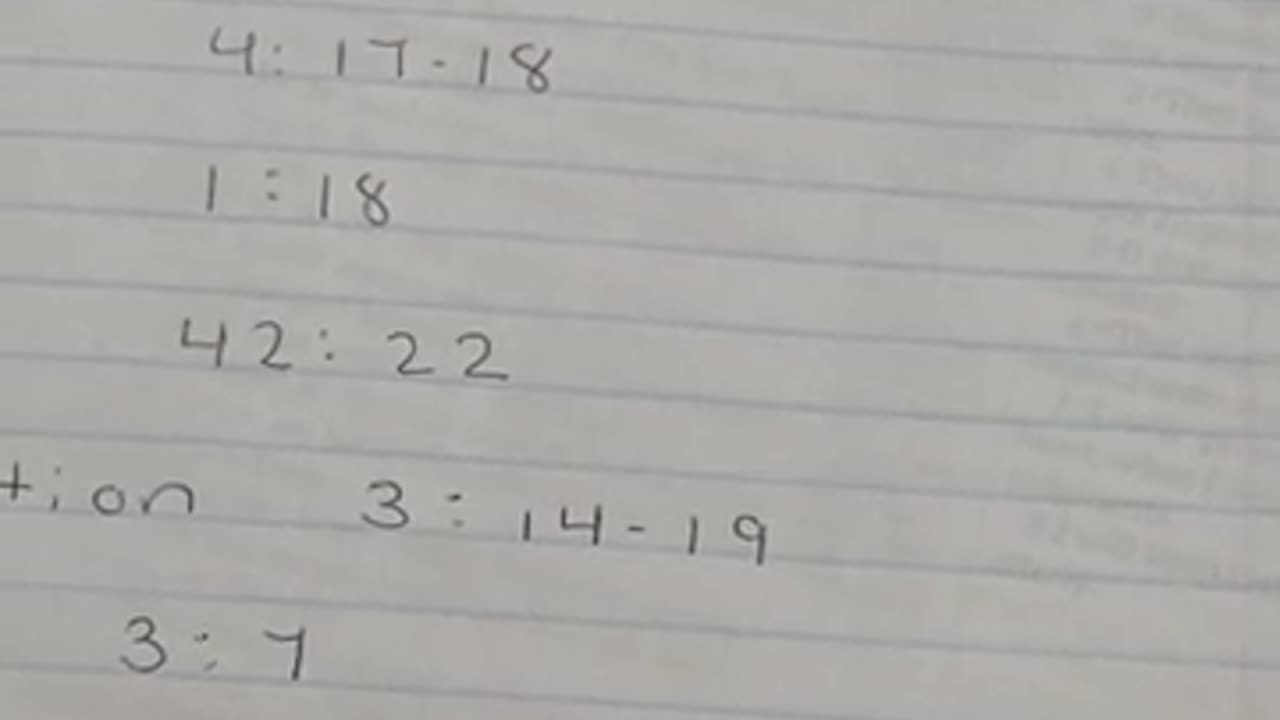 4: 17-18
1:18
42: 22
tion 3: 14-19
3: 7